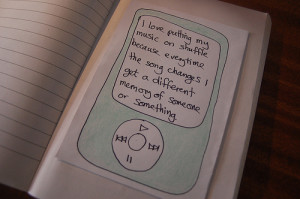 I love putting my
music on shuffle
because everytime
the song changes I
get a different
memory of someone
or something.